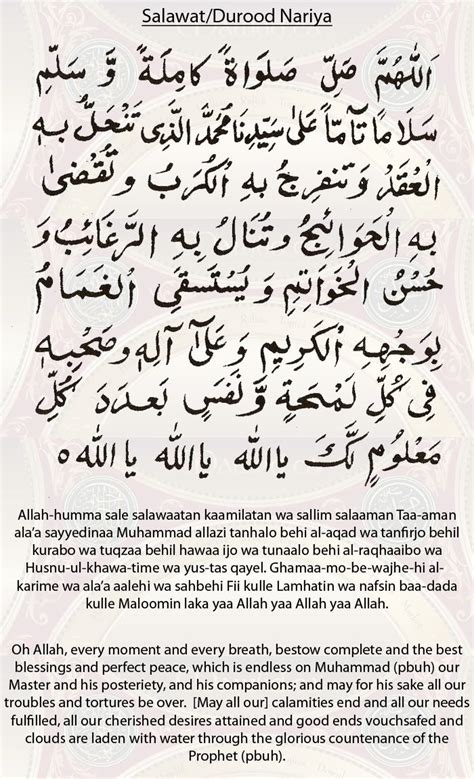 Salawat/Durood Nariya
اَللّٰهُمَّ صَلِّ صَلَوٰةً كَامِلَةً وَّ سَلِّمْ
سَلَامًا تَآمًّا عَلٰى سَيِّدِنَا مُحَمَّدِ الَّذِى تَنْحَلُّ بِهِ
الْعُقَدُ وَ تَنْفَرِجُ بِهِ الْكُرَبُ وَ تُقْضٰى
بِهِ الْحَوَائِجُ وَ تُنَالُ بِهِ الرَّغَائِبُ وَ
حُسْنُ الْخَوَاتِمِ وَ يُسْتَسْقَى الْغَمَامُ
بِوَجْهِهِ الْكَرِيمِ وَ عَلٰى آلِهٖ وَ صَحْبِهٖ
فِى كُلِّ لَمْحَةٍ وَّ نَفَسٍ بِعَدَدِ كُلِّ
مَعْلُومٍ لَّكَ يَا اَللهُ يَا اَللهُ يَا اَللهُ ٥
Allah-humma sale salawaatan kaamilatan wa sallim salaaman Taa-aman
ala'a sayyedinaa Muhammad allazi tanhalo behi al-aqad wa tanfirjo behil
kurabo wa tuqzaa behil hawaa ijo wa tunaalo behi al-raqhaaibo wa
Husnu-ul-khawa-time wa yus-tas qayel. Ghamaa-mo-be-wajhe-hi al-
karime wa ala'a aalehi wa sahbehi Fii kulle Lamhatin wa nafsin baa-dada
kulle Maloomin laka yaa Allah yaa Allah yaa Allah.
Oh Allah, every moment and every breath, bestow complete and the best
blessings and perfect peace, which is endless on Muhammad (pbuh) our
Master and his posteriety, and his companions; and may for his sake all our
troubles and tortures be over. [May all our] calamities end and all our needs
fulfilled, all our cherished desires attained and good ends vouchsafed and
clouds are laden with water through the glorious countenance of the
Prophet (pbuh).